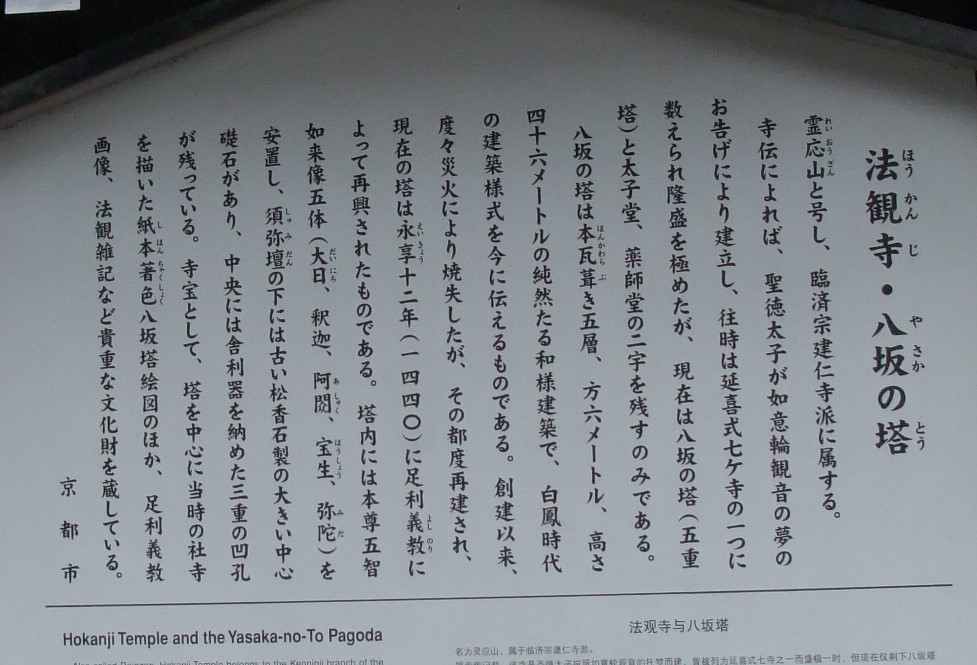 法観寺・八坂の塔
ほうかんじ やさか とう
霊応山と号し、臨済宗建仁寺派に属する。
れいおうざん
寺伝によれば、聖徳太子が如意輪観音の夢の
お告げにより建立し、往時は延喜式七ケ寺の一つに
数えられ隆盛を極めたが、現在は八坂の塔（五重
塔）と太子堂、薬師堂の二宇を残すのみである。
八坂の塔は本瓦葺き五層、方六メートル、高さ
ほんかわらぶ
四十六メートルの純然たる和様建築で、白鳳時代
の建築様式を今に伝えるものである。創建以来、
度々災火により焼失したが、その都度再建され、
現在の塔は永享十二年（一四四〇）に足利義教に
えいきょう よしのり
よって再興されたものである。塔内には本尊五智
如来像五体（大日、釈迦、阿閦、宝生、弥陀）を
だいにち あしゅく ほうしょう みだ
安置し、須弥壇の下には古い松香石製の大きい中心
しゅみだん
礎石があり、中央には舎利器を納めた三重の凹孔
が残っている。寺宝として、塔を中心に当時の社寺
を描いた紙本著色八坂塔絵図のほか、足利義教
しほんちゃくしょく
画像、法観雑記など貴重な文化財を蔵している。
京都市
Hokanji Temple and the Yasaka-no-To Pagoda
法观寺与八坂塔
名为灵应山，属于临济宗建仁寺派。